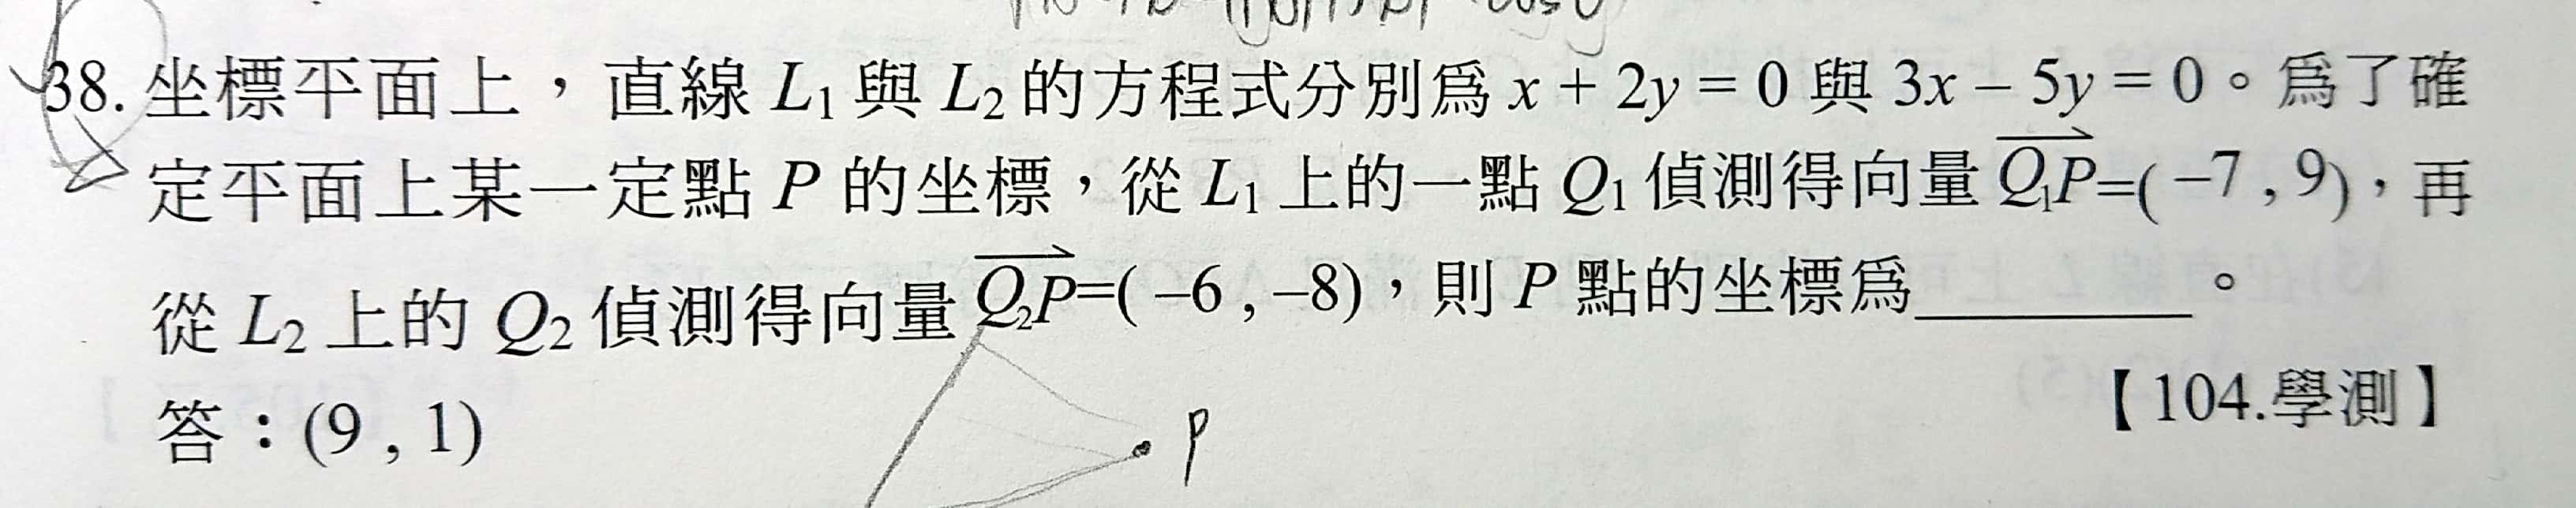 38. 坐標平面上，直線 L₁ 與 L₂ 的方程式分別為 x + 2y = 0 與 3x – 5y = 0。為了確
定平面上某一定點 P 的坐標，從 L₁ 上的一點 Q₁ 偵測得向量 Q₁P=( –7 , 9)，再
從 L₂ 上的 Q₂ 偵測得向量 Q₂P=( –6 , –8)，則 P 點的坐標為________。
【104.學測】
答：(9 , 1)
P